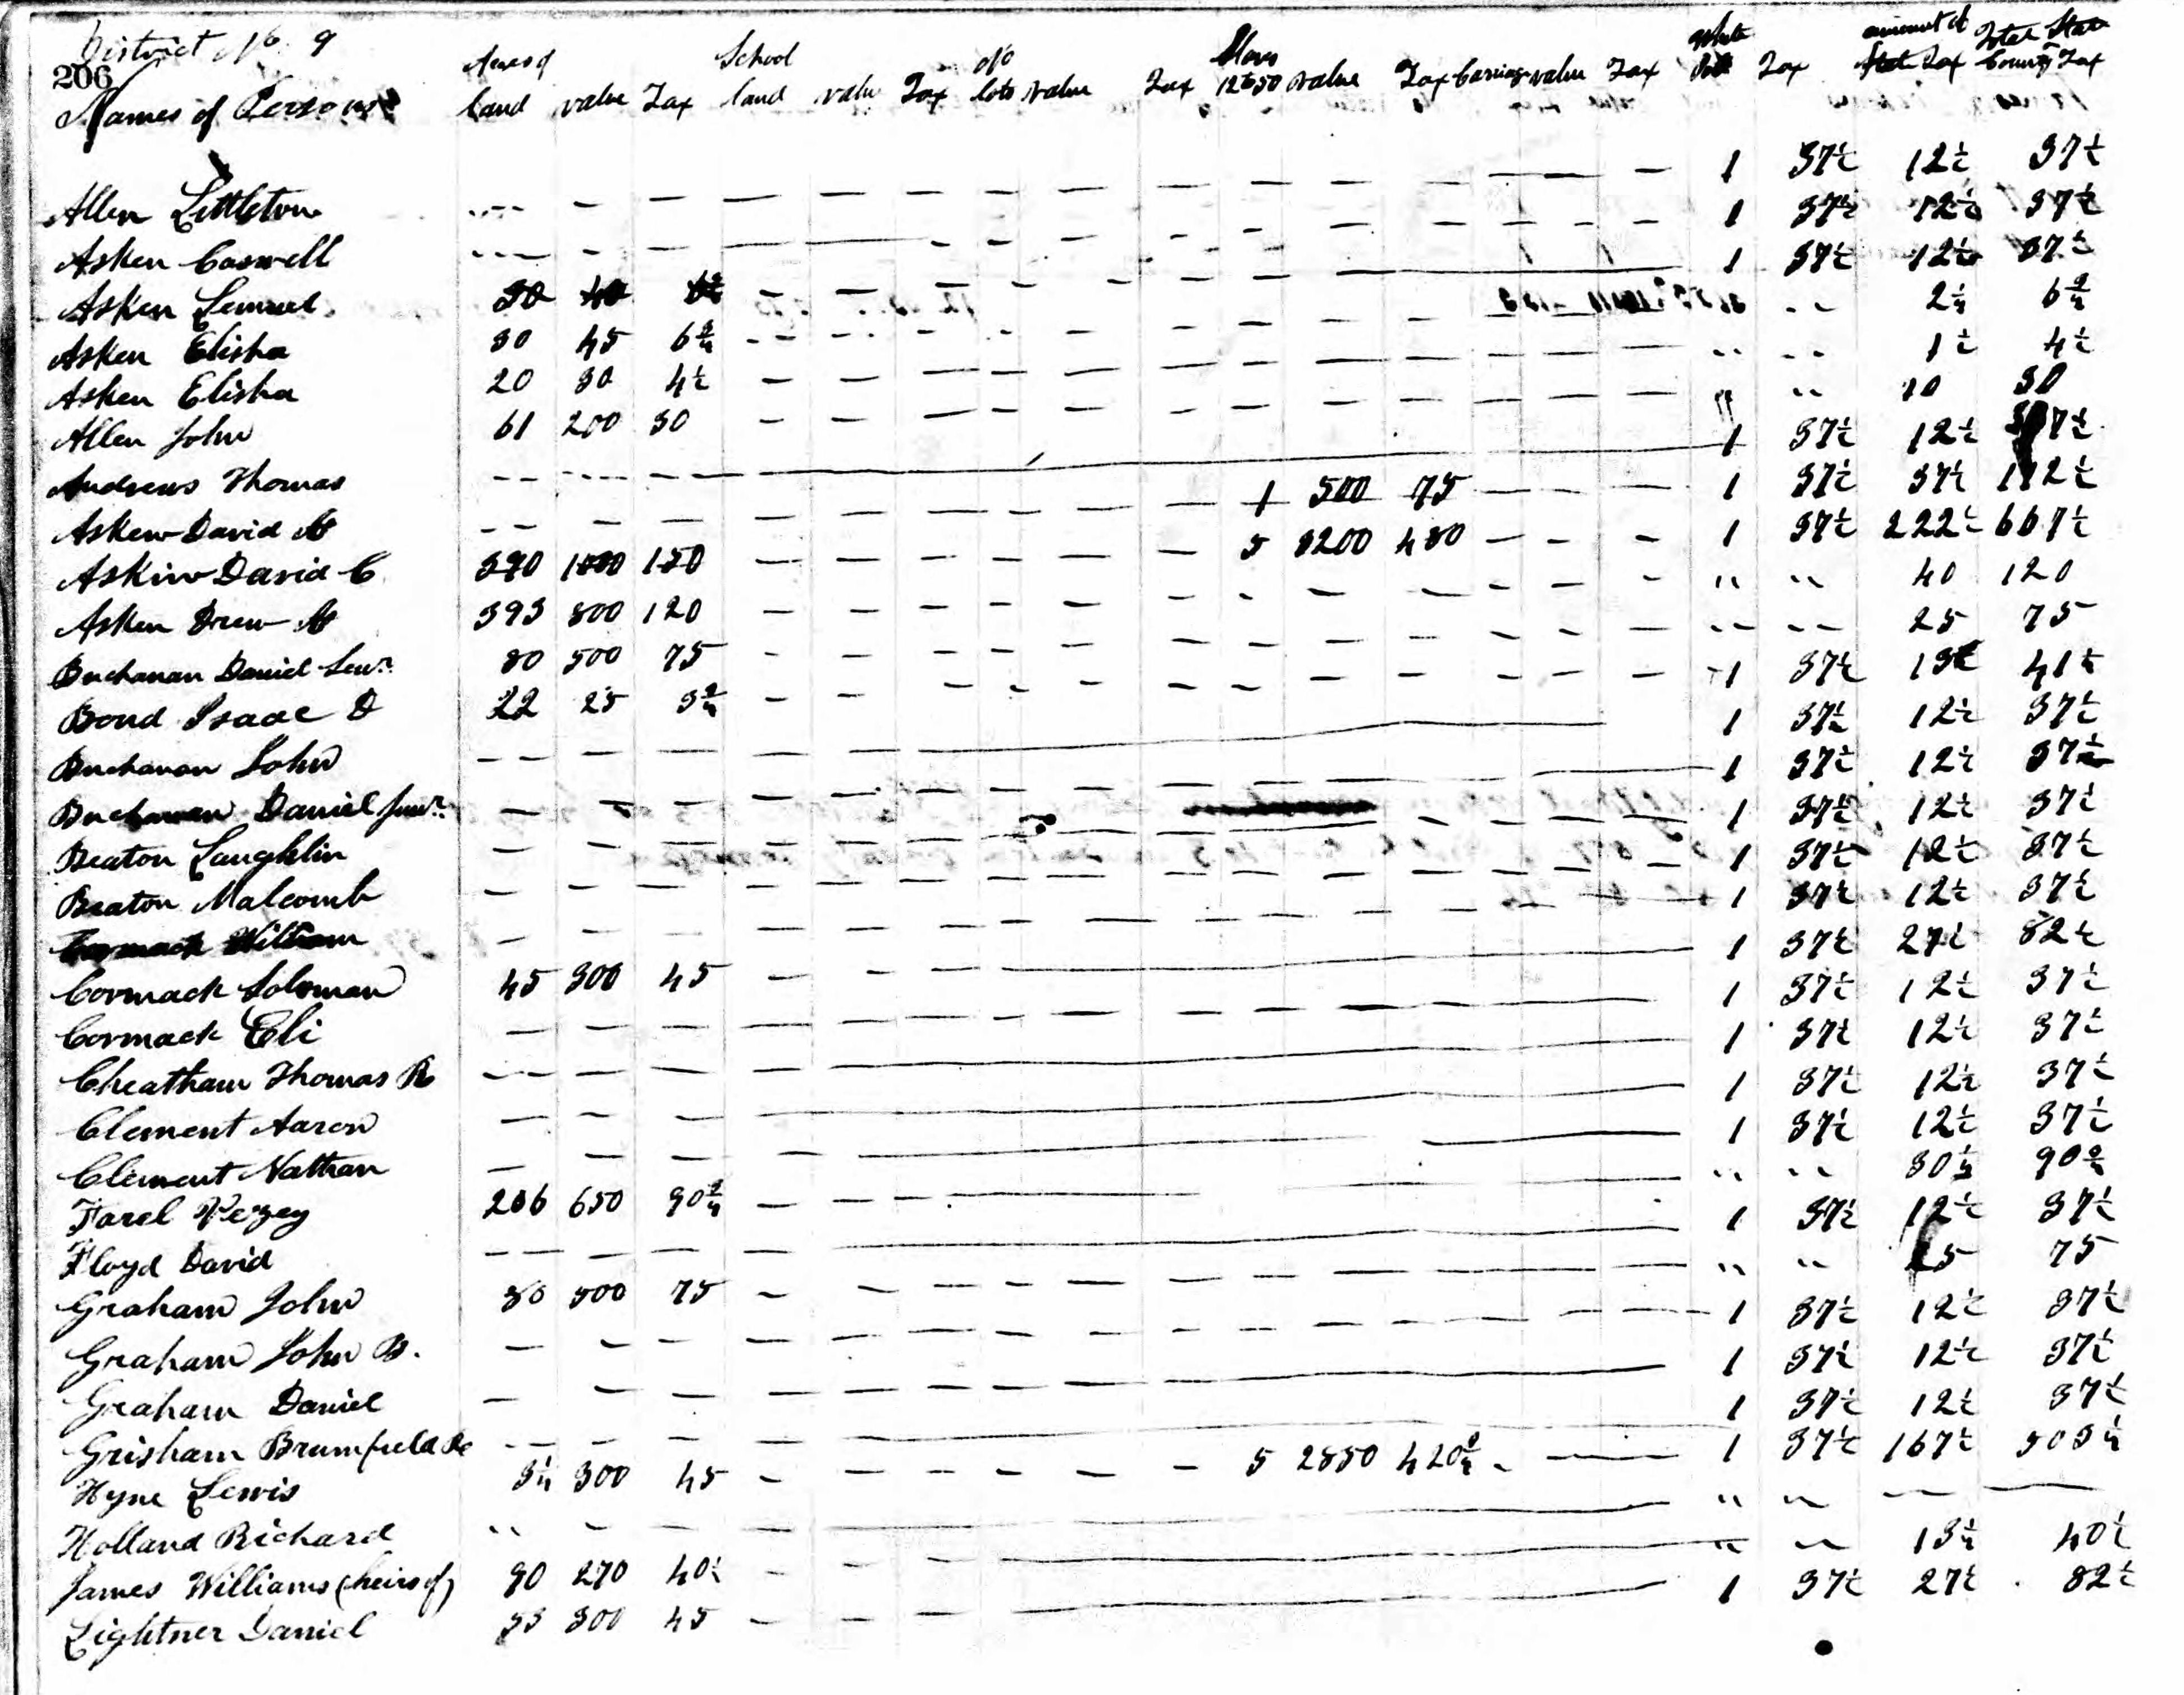 District No 9
206
Names of Persons Acres of land value Tax School land valu Tax No lots value Tax Slaves 12 to 50 value Tax Carriage value Tax White Poll Tax amount of State Tax Total State County Tax
Allen Littleton --- - - - - - - - - - - - - - - 1 37½ 12½ 37½
Asken Caswell --- - - - - - - - - - - 1 37½ 12½ 37½
Asken Lemuel 30 40 - - - - - - 1 37½ 12½ 37½
Asken Elisha 30 45 6¾ - - - - - - - - - - - 2¼ 6¾
Asken Elisha 20 30 4½ - - - - - - - - - " " 1½ 4½
Allen John 61 200 30 - - - - - - - - - " " 10 30
Andrews Thomas - - - - - 1 37½ 12½ 37½
Askew David A - - - - - - - - - 1 500 75 - - - 1 37½ 37½ 112½
Askew David C 390 1000 150 - - - - - - 5 3200 480 - - - 1 37½ 222½ 667½
Asken Drew A 393 800 120 - - - - - - - - - - " " 40 120
Buchanan Daniel Senr. 80 500 75 - - - - - - - - - - " " 25 75
Bond Isaac D 22 25 3¾ - - - - - - - - - - 1 37½ 13½ 41¼
Buchanan John - - - - - 1 37½ 12½ 37½
Buchanan Daniel Junr. - - - - - - - - 1 37½ 12½ 37½
Beaton Laughlin - - - - - - - - - - 1 37½ 12½ 37½
Beaton Malcomb - - - - - - - - - - - 1 37½ 12½ 37½
Cormack William - - - - - - - - - - - 1 37½ 12½ 37½
Cormack Soloman 45 300 45 - - - - 1 37½ 27½ 82½
Cormack Eli - - - - - - - 1 37½ 12½ 37½
Cheatham Thomas R - - - - - 1 37½ 12½ 37½
Clement Aaron - - - - 1 37½ 12½ 37½
Clement Nathan - - - - - - 1 37½ 12½ 37½
Farel Vezey 206 650 90¾ - - - " " 30¼ 90¾
Floyd David - - - - - 1 37½ 12½ 37½
Graham John 80 500 75 - - - - - - - - - " " 25 75
Graham John B. - - - - - - - - - - - - 1 37½ 12½ 37½
Graham Daniel - - - - - - - - 1 37½ 12½ 37½
Grisham Brumfield R - - - - - 1 37½ 12½ 37½
Hyne Lewis 3¼ 300 45 - - - - - - 5 2850 420¾ - - 1 37½ 167½ 503¼
Holland Richard " - - - " " - -
James Williams (heirs of) 90 270 40½ - - - " " 13½ 40½
Lightner Daniel 53 300 45 - - - - 1 37½ 27½ 82½